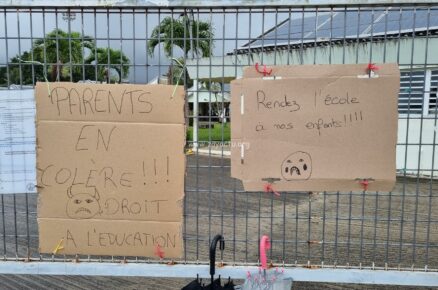 PARENTS
EN
COLÈRE !!!
DROIT
A L'EDUCATION
Rendez l'école
à nos enfants!!!!